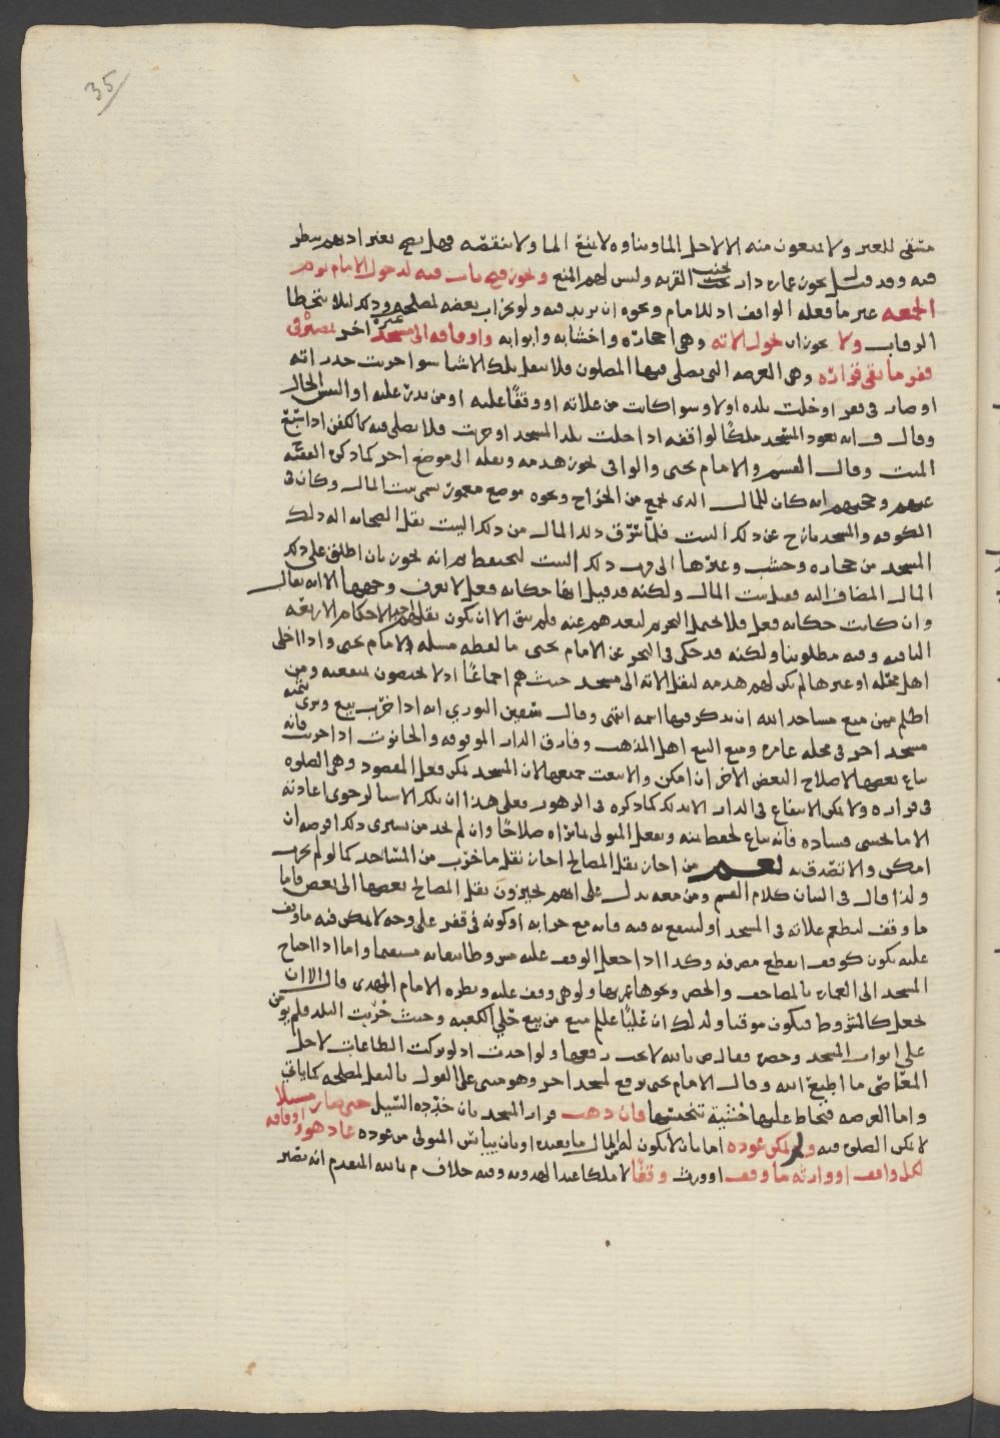 35
للغير ولا يمنعون منه الا لاجل الما وبناوه لا يمنع الما ولا ينقصه فهل يصح
فيه وقد قيل يجوز عماره دار تحت القريه وليس لهم المنع ويجوز فتح باب فيه لدخول الامام يوم
الجمعه غير ما فعله الواقف اذ للامام ونحوه ان يزيد فيه ولو بخراب بعضه لمصلحه وذلك لئلا يتخطا
الرقاب ولا يجوز ان تحول الاته وهي احجاره واخشابه وابوابه واوقافه الى مسجد اخر
قفر ما بقي قراره وهي العرصه التي يصلي فيها المصلون فلا ينقل تلك الاشيا سوا خربت جدراته
او صار في قفر او خلت بلده اولا وسوا كانت من غلاته او وقفًا عليه او من
وقال انه يعود المسجد ملكًا لواقفه اذا خلت بلد المسجد او خربت فلا يصلى فيه كالكفن اذا
الميت وقال القسم والامام يحيى والوافي يجوز هدمه ونقله الى موضع اخر كما ذكره الفقيه
وحجتهم انه كان للمال الذي يجمع من الخراج ونحوه موضع معمور يسمى بيت المال وكان في
الكوفه والمسجد نازح عن ذلك البيت فلما سرق ذلك المال من ذلك البيت نقل الصحابه اله ذلك
المسجد من حجاره وخشب وغيرها الى قرب ذلك البيت ليحفظ
المال المضاف اليه فقيل بيت المال ولكنه قد قيل انها حكايه فعل لا يعرف وجهها الا انه يقال
وان كانت حكايه فعل فلا يحتمل التحريم لبعدهم عنه فلم يبق الا ان يكون نقلهم احد الاحكام الاربعه
الباقيه وفيه مطلوبنا ولكنه قد حكى في البحر عن الامام يحيى ما لفظه مسله الامام يحيى واذا اخلى
اهل محله او غيرها لم يكن لهم هدمه لنقل الاته الى مسجد حيث هم اجماعًا اذ لا يختصون بنفعه ومن
اظلم ممن منع مساجد الله ان يذكر فيها اسمه انتهى وقال سفين الثوري انه اذا خرب بيع وشرى بثمنه
مسجد اخر في محله عامره ومنع البيع اهل المذهب وفارق الدار الموقوفه والحانوت اذا خربت فانه
يباع بعضها لاصلاح البعض الاخر ان امكن والا بيعت جميعها لان المسجد يمكن فعل المقصود وهي الصلوه
في قراره ولا يمكن الانتفاع في الدار الا بذلك كما ذكره في الزهور فعلى هذا ان تلك الاشيا لو رجوى اعادته
الا ما يخشى فساده فانه يباع لحفظ ثمنه ويفعل المتولى ما يراه صلاحًا وان لم يجد من يشترى ذلك اقرضه ان
امكن والا تصدق به نعم من اجاز نقل المصالح اجاز نقل ما خرب من المساجد كما لو لم يخرب
ولذا قال في البيان كلام القسم ومن معه يدل على انهم يجيزون نقل المصالح بعضها الى بعض فاما
ما وقف ليطعم غلاته في المسجد او لينتفع به فيه فانه مع خرابه او كونه في قفر على وجه لا يمكن فيه ما وقف
عليه يكون كوقف انقطع مصرفه وكذا اذا جعل الوقف عليه مشروطا ببقائه مستقيما واما اذا احتاج
المسجد الى العماره بالمصاحف والحصر ونحوها عمر بها ولو هي وقف عليه ونظره الامام المهدى قال الا ان
يجعل كالمشروط فيكون موقتا ولذلك ان غلبًا عليلم منع من بيع حلي الكعبه وحيث خربت البلد فلم يومن
على ابواب المسجد وحصره فقال ص بالله لا يجب رفعها ولو اخذت اذ لو تركت الطاعات لاجل
المعاصي ما اطيع الله وقال الامام يحيى يرفع لمسجد اخر وهو مبني على القول بالنقل لمصلحه كما ياتي
واما العرصه فيحاط عليها خشية تنجسها فان ذهب قرار المسجد بان خدده السيل حتى صار مسيلا
لا يمكن الصلوه فيه ولم يمكن عوده اما بان لا يكون له مال ما يعيده او بان يياس المتولى من عوده عاد هو واوقافه
لكل واقف او وارثه ما وقف او ورث وقفًا لا ملكا عند الهدويه وفيه خلاف م بالله المتقدم انه يصير